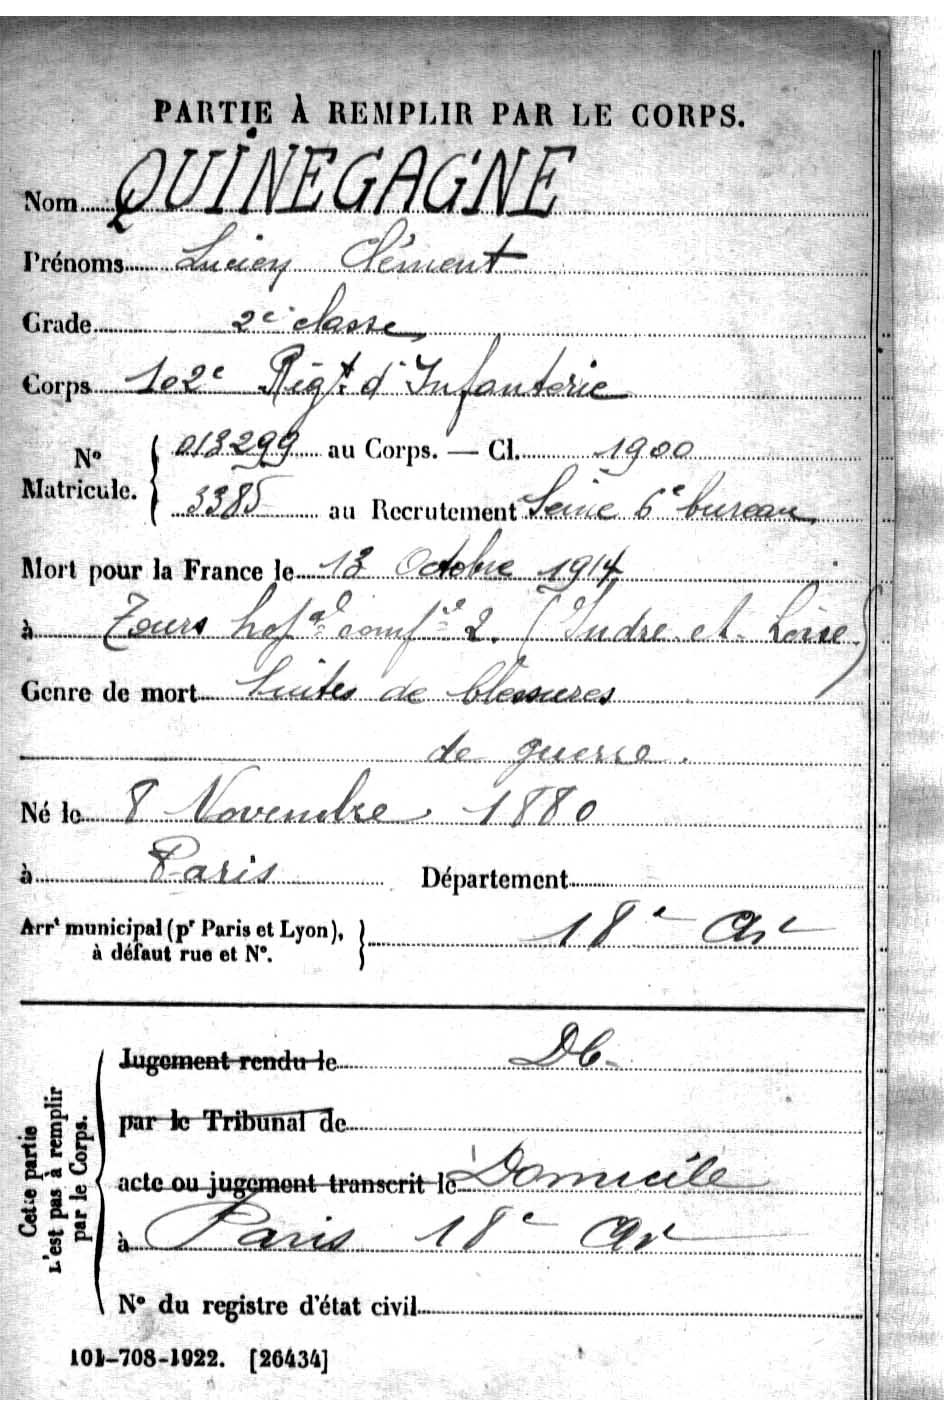 PARTIE À REMPLIR PAR LE CORPS.
Nom QUINEGAGNE
Prénoms Lucien Clément
Grade 2e classe
Corps 102e Régt d'Infanterie
N° Matricule. { 013299 au Corps. — Cl. 1900
3385 au Recrutement Seine 6e bureau
Mort pour la France le 13 Octobre 1914
à Tours hopal compre 2. (Indre et Loire)
Genre de mort Suites de blessures
de guerre.
Né le 8 Novembre 1880
à Paris Département
Arrt municipal (pr Paris et Lyon), à défaut rue et N°. } 18e Art
Cette partie n'est pas à remplir par le Corps.
Jugement rendu le
par le Tribunal de
acte ou jugement transcrit le Domicile
à Paris 18e Art
N° du registre d'état civil
101-708-1922. [26434]